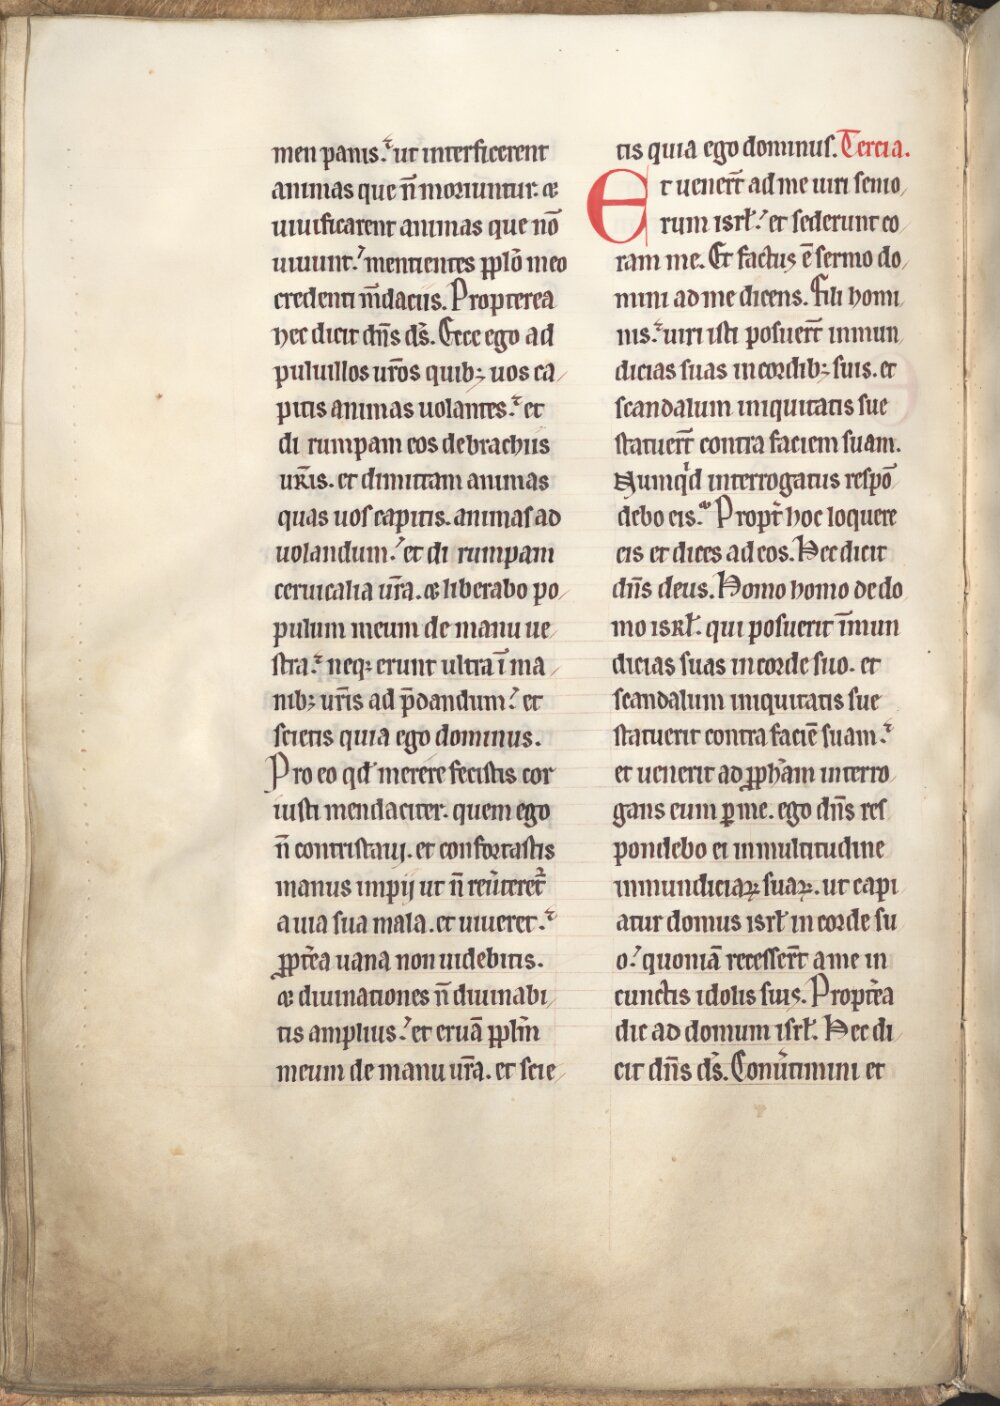 men panis. ut interficerent
animas que n̄ moriuntur. &
uiuificarent animas que nō
uiuunt. mentientes pplō meo
credenti m̄daciis. Propterea
hec dicit dn̄s ds̄. Ecce ego ad
puluillos ur̄os quib; uos ca/
pitis animas uolantes. et
di rumpam eos de brachiis
ur̄is. et dimittam animas
quas uos capitis. animas ad
uolandum. et di rumpam
ceruicalia ur̄a. & liberabo po/
pulum meum de manu ue/
stra. neq; erunt ultra ī ma/
nib; ur̄is ad p̄dandum. et
scietis quia ego dominus.
Pro eo qd̄ merere fecistis cor
iusti mendaciter. quem ego
n̄ contristaui. et confortastis
manus impij ut n̄ reu̓teret᷑
a uia sua mala. et uiueret.
ppt̓ea uana non uidebitis.
& diuinationes n̄ diuinabi/
tis amplius. et eruā pplm̄
meum de manu ur̄a. et scie/
tis quia ego dominus. Tercia.
Et uener̄t ad me uiri senio/
rum isrł. et sederunt co/
ram me. Et factus ē sermo do/
mini ad me dicens. Fili homi/
nis. uiri isti posuer̄t inmun/
dicias suas in cordib; suis. et
scandalum iniquitatis sue
statuer̄t contra faciem suam.
Numqͥd interrogatus respō/
debo eis. Propt̓ hoc loquere
eis et dices ad eos. Hec dicit
dn̄s deus. Homo homo de do/
mo isrł. qui posuerit īmun
dicias suas in corde suo. et
scandalum iniquitatis sue
statuerit contra faciē suam.
et uenerit ad pph̄am interro/
gans eum ꝑ me. ego dn̄s res/
pondebo ei in multitudine
inmundiciaꝝ suaꝝ. ut capi/
atur domus isrł in corde su/
o. quoniā recesser̄t a me in
cunctis idolis suis. Propt̓ea
dic ad domum isrł. Hec di/
cit dn̄s ds̄. Conu̓timini et